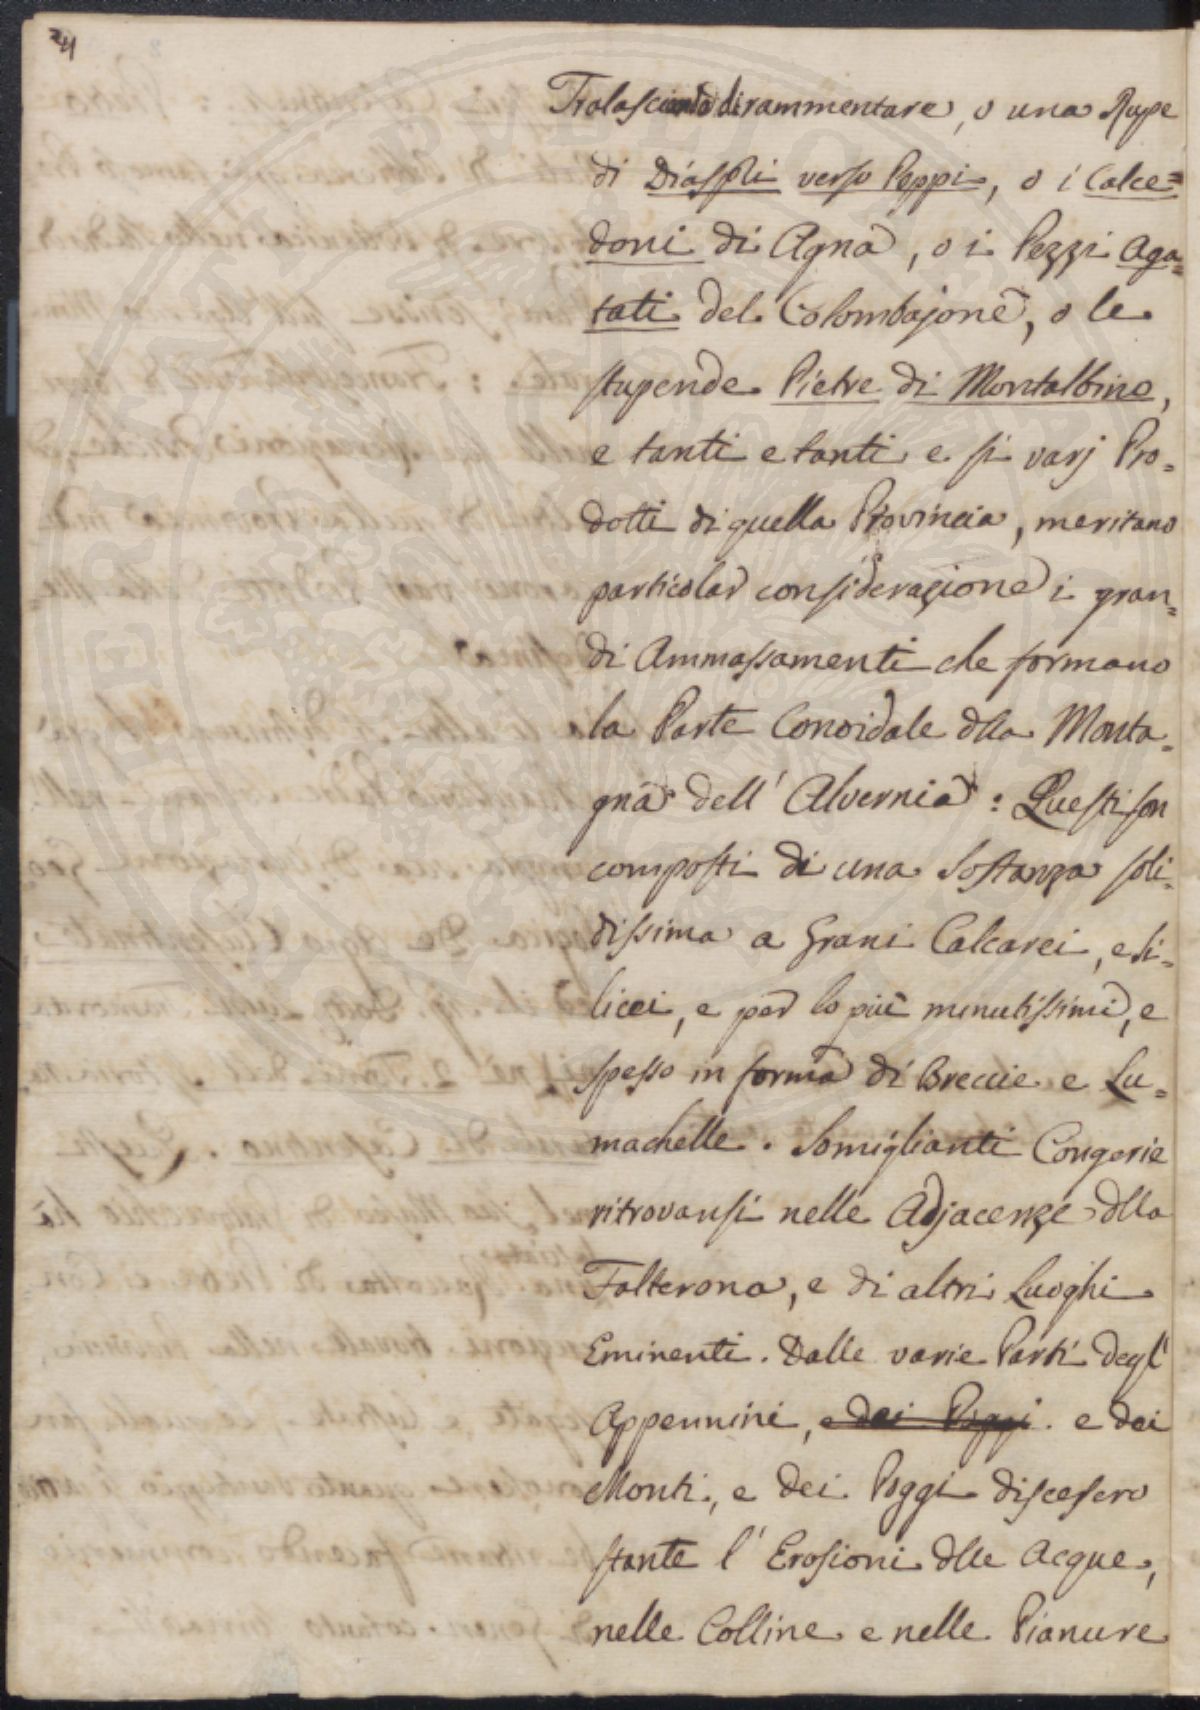 24
Tralasciando di rammentare, o una Rupe
di Diaspri verso Poppi, o i Calce=
doni di Agna, o i Pezzi Aga=
tati del Colombajone, o le
stupende Pietre di Montalbino,
e tanti e tanti e si varj Pro=
dotti di quella Provincia, meritano
particolar considerazione i gran=
di Ammassamenti che formano
la Parte Conoidale dlla Monta=
gna dell' Alvernia: Questi son
composti di una Sostanza soli=
dissima a Grani Calcarei, e si=
licei, e per lo più minutissimi, e
spesso in forma di Breccie e Lu=
machelle. Somiglianti Congerie
ritrovansi nelle Adjacenze dlla
Falterona, e di altri Luoghi
Eminenti. Dalle varie Parti degl'
Appennini, e dei Poggi. e dei
Monti, e dei Poggi discesero
stante l' Erosioni dlle Acque,
nelle Colline e nelle Pianure